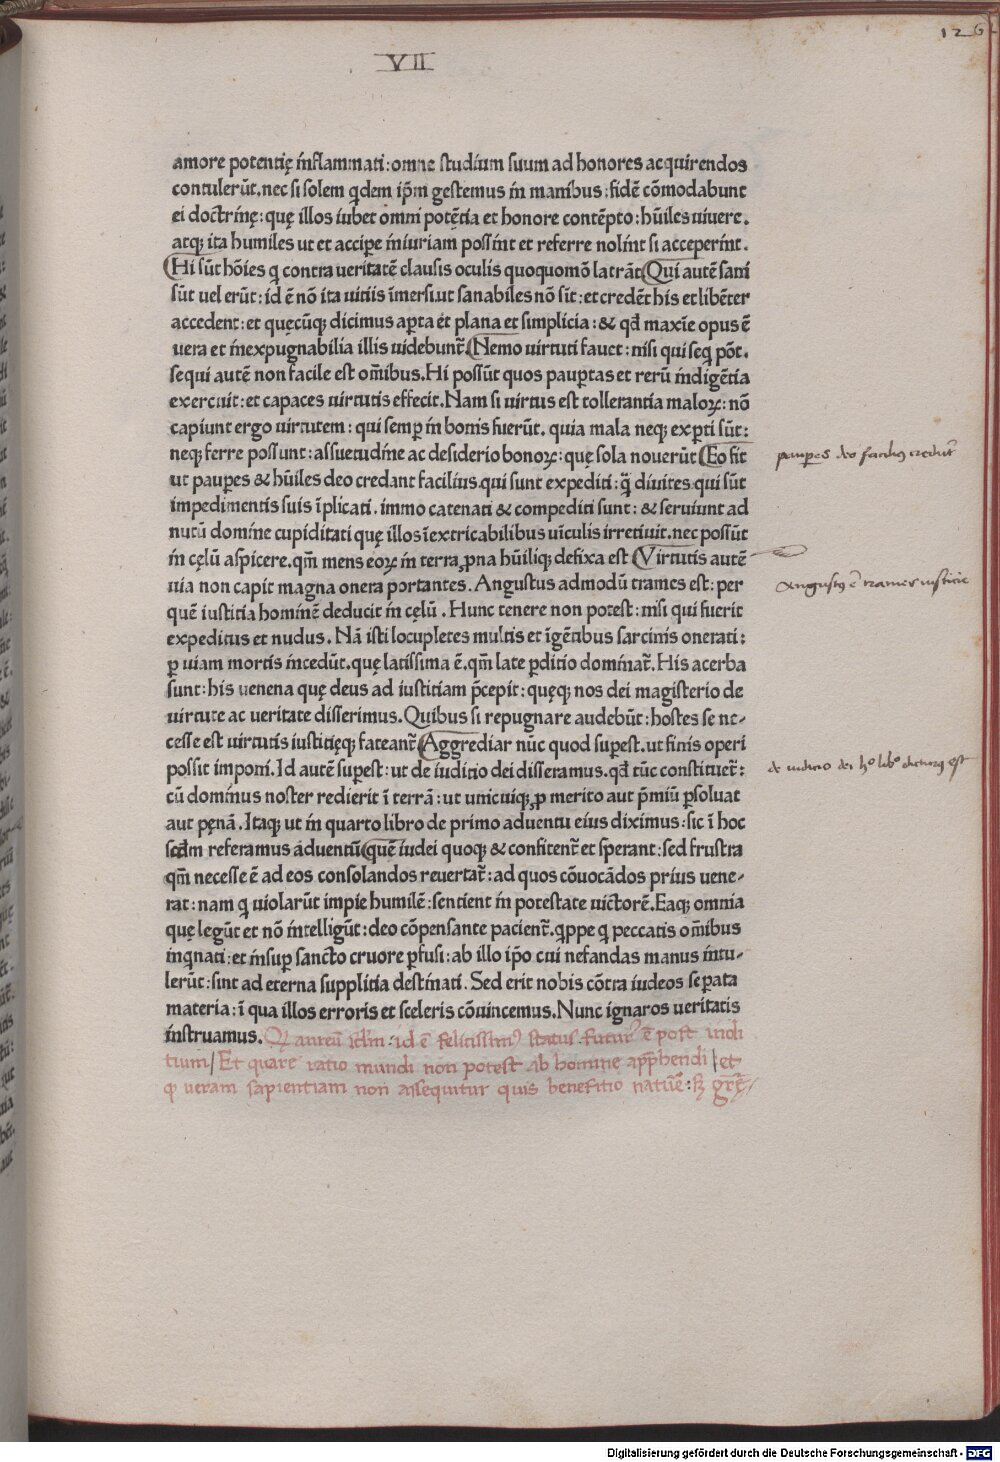 VII
126
amore potentię inflammati: omne studium suum ad honores acquirendos
contulerūt. nec si solem qdem ip̄m gestemus in manibus: fidē cōmodabunt
ei doctrinę: quę illos iubet omni potētia et honore contēpto: hūiles uiuere.
atq; ita humiles ut et accipe iniuriam possint et referre nolint si acceperint.
Hi sūt hōies q contra ueritatē clausis oculis quoquomō latrāt Qui autē sani
sūt uel erūt: id ē nō ita uitiis īmersi. ut sanabiles nō sīt: et credēt his et libēter
accedent: et quęcūq; dicimus apta et plana et simplicia: & qđ maxīe opus ē
uera et inexpugnabilia illis uidebunt̄. Nemo uirtuti fauet: nisi qui seq pōt.
sequi autē non facile est om̄ibus. Hi possūt quos paupertas et rerū indigētia
exercuit: et capaces uirtutis effecit. Nam si uirtus est tollerantia maloꝝ: nō
capiunt ergo uirtutem: qui semp in bonis fuerūt. quia mala neq; exp̱ti sūt:
neq; ferre possunt: assuetudīne ac desiderio bonoꝝ: quę sola nouerūt Eo fit
ut paupes & hūiles deo credant facilius. qui sunt expediti: q̄ diuites. qui sūt
impedimentis suis īplicati. immo catenati & compediti sunt: & seruiunt ad
nutū domine cupiditati quę illos īextricabilibus uīculis irretiuit. nec possūt
in cęlū aspicere. qm̄ mens eoꝝ in terra ꝓna hūiliq; defixa est Virtutis autē
uia non capit magna onera portantes. Angustus admodū trames est: per
quē iustitia hominē deducit in cęlū. Hunc tenere non potest: nisi qui fuerit
expeditus et nudus. Nā isti locupletes multis et īgētibus sarcinis onerati:
ꝑ uiam mortis incedūt. quę latissima ē. qm̄ late ꝑditio dominat̄. His acerba
sunt: his uenena quę deus ad iustitiam p̄cepit: quęq; nos dei magisterio de
uirtute ac ueritate disserimus. Quibus si repugnare audebūt: hostes se ne-
cesse est uirtutis iustitięq; fateant̄ Aggrediar nūc quod supest. ut finis operi
possit imponi. Id autē supest: ut de iuditio dei disseramus. qđ tūc constituet̄:
cū dominus noster redierit ī terrā: ut unicuiq; ꝓ merito aut p̄miū ꝑsoluat
aut pęnā. Itaq; ut in quarto libro de primo aduentu eius diximus: sic ī hoc
scđm referamus aduentū quē iudei quoq; & confitent̄ et sperant: sed frustra
qm̄ necesse ē ad eos consolandos reuertat̄: ad quos cōuocādos prius uene-
rat: nam q uiolarūt impie humilē: sentient in potestate uictorē. Eaq; omnia
quę legūt et nō intelligūt: deo cōpensante pacient̄. qppe q peccatis om̄ibus
inqnati: et insup sancto cruore ꝑfusi: ab illo ip̄o cui nefandas manus intu-
lerūt: sint ad eterna supplitia destinati. Sed erit nobis cōtra iudeos separata
materia: ī qua illos erroris et sceleris cōuincemus. Nunc ignaros ueritatis
instruamus. Q aureū sc̄lm: id ē felicissimꝰ status futurꝰ ē post iudi
tium / Et quare ratio mundi non potest ab homine app̄hendi / et
ꝙ ueram sapientiam non assequitur quis benefitio natiuē: sꝫ grę
pauperes deo facilius credūt
Angustus ē trames iustitie
de iuditio dei hº libº dicturus est
Digitalisierung gefördert durch die Deutsche Forschungsgemeinschaft - DFG